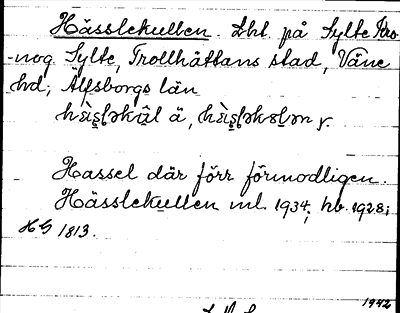 Hässlekullen. Lht. på Sylte Kro-
nog. Sylte, Trollhättans stad, Väne
hd, Älfsborgs län
ä, y.
Hassel där förr förmodligen.
Hässlekullen ml. 1934; hb. 1928;
HG 1813.
1942